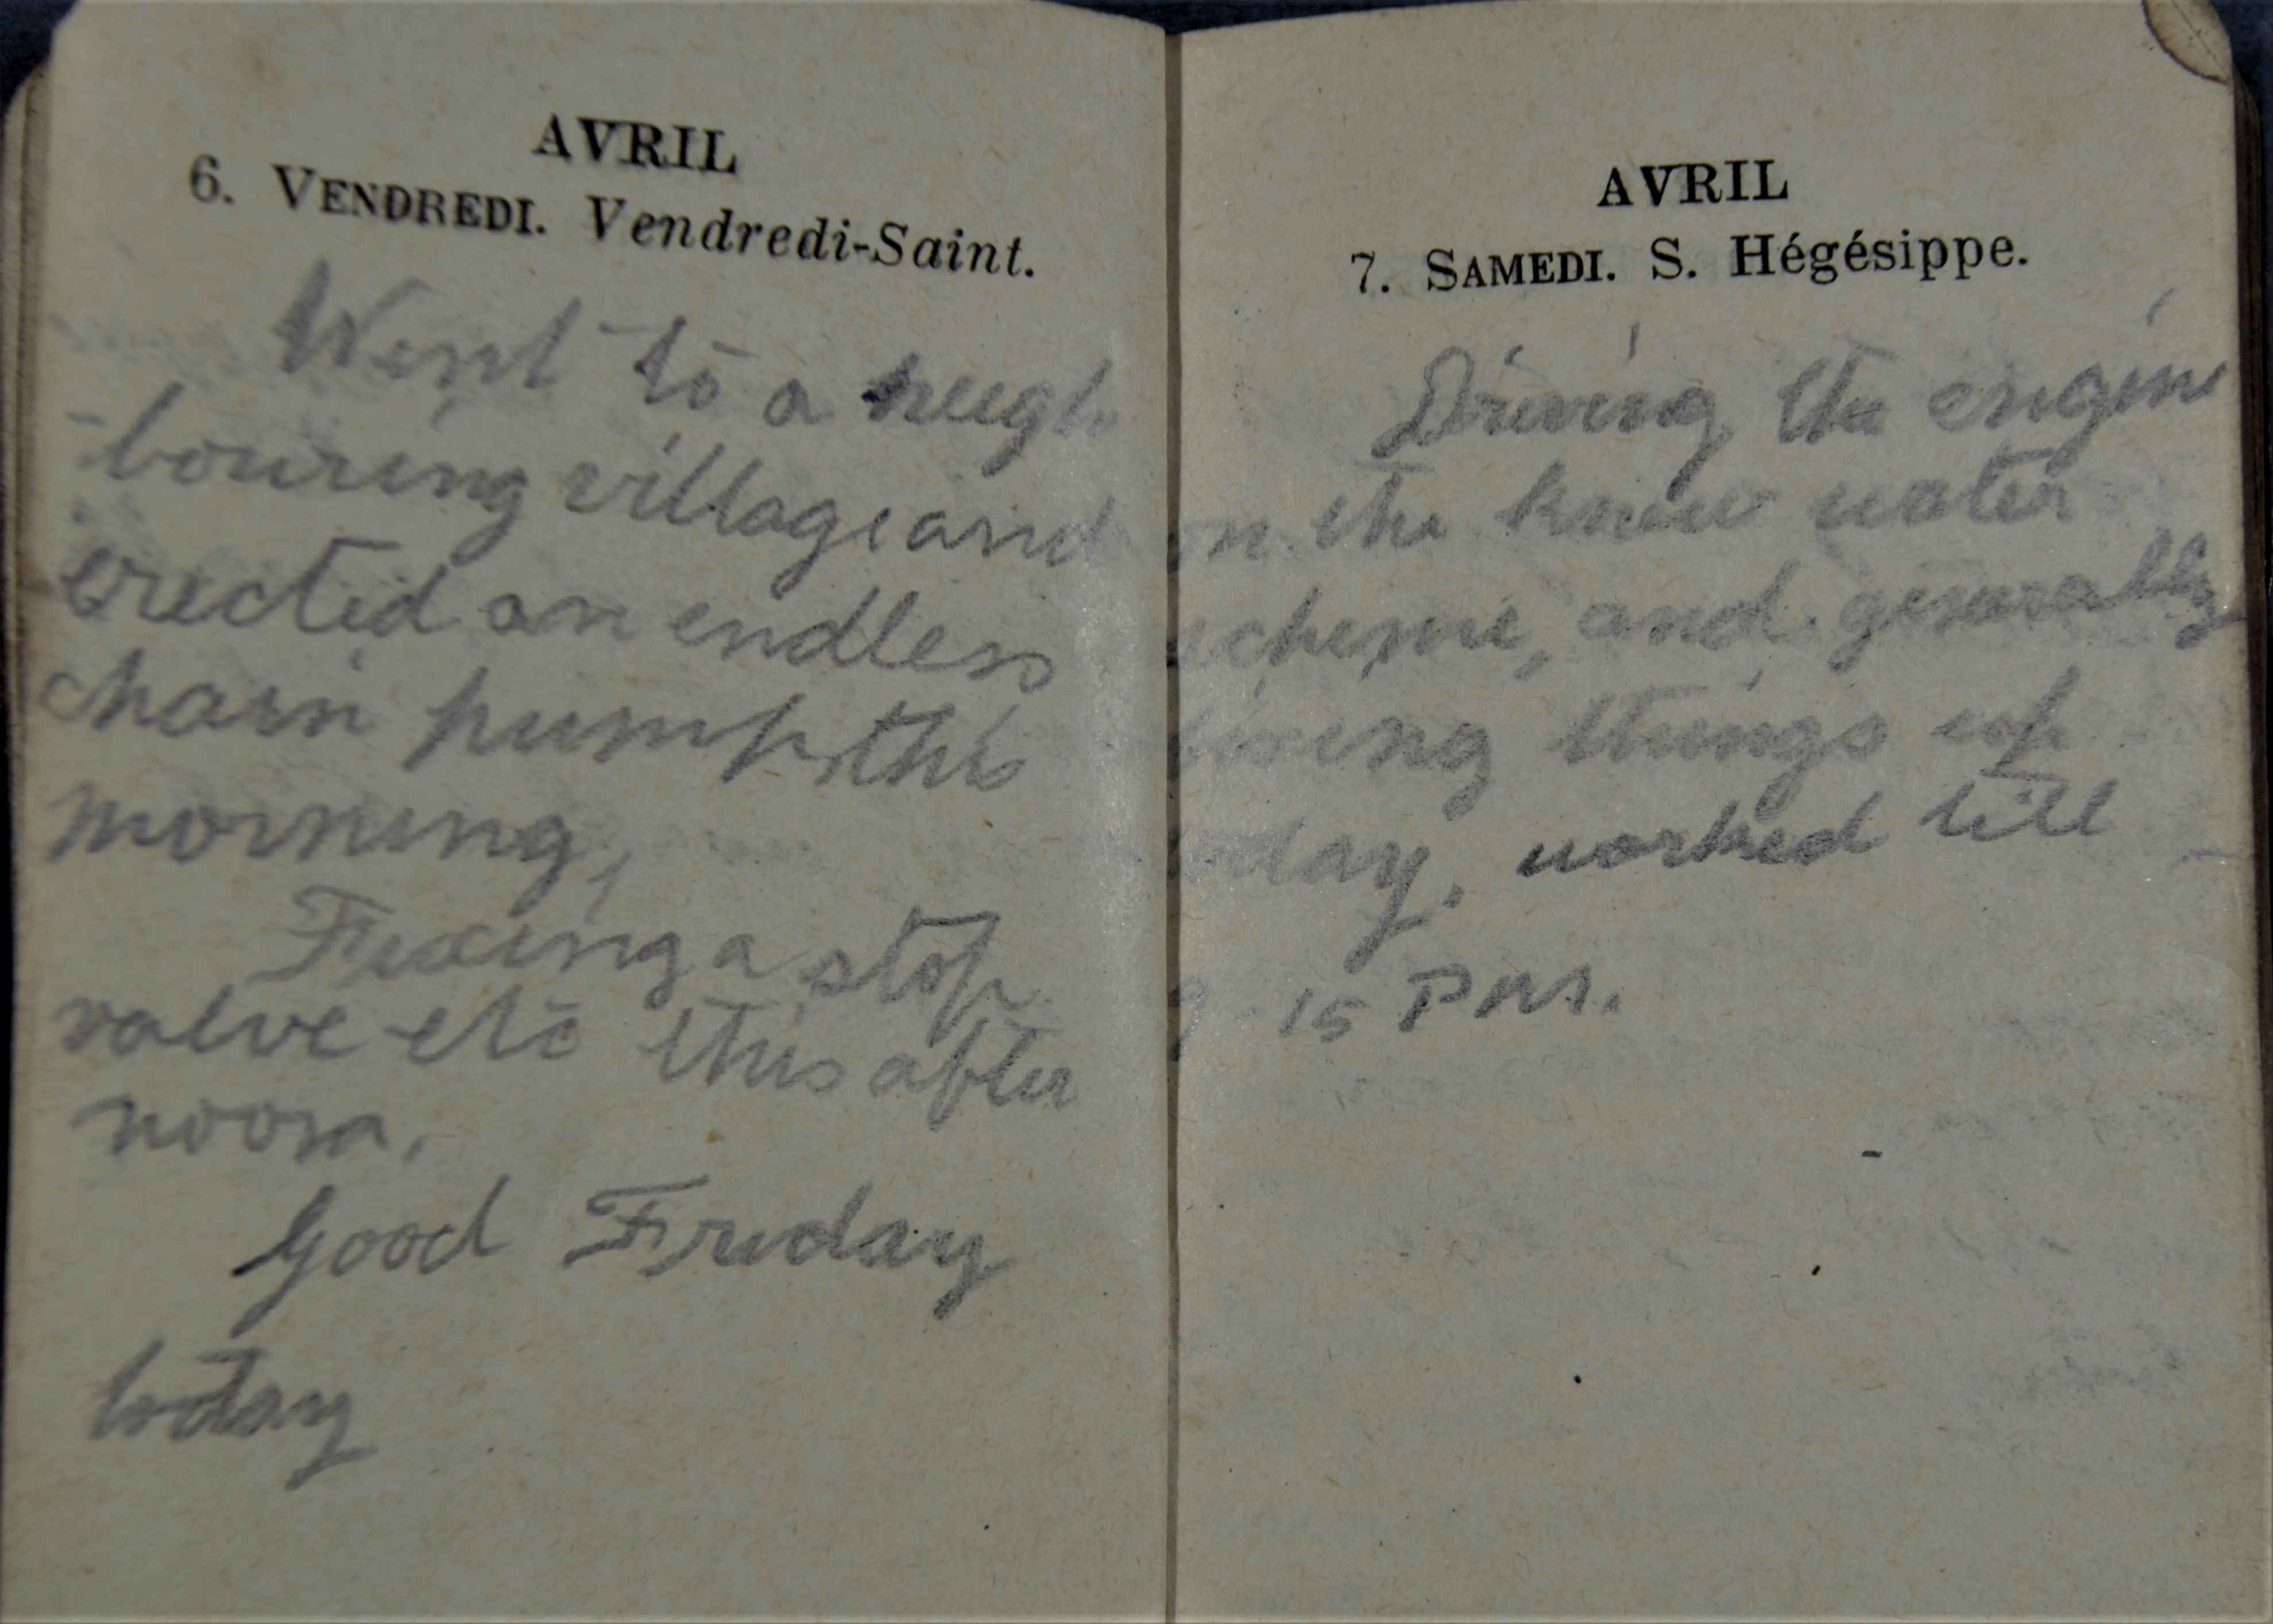 AVRIL
6. VENDREDI. Vendredi-Saint.
Went to a neigh
-bouring village and
erected an endless
chain pump this
morning,
Fixing a stop
valve etc this after
noon.
Good Friday
today
AVRIL
7. SAMEDI. S. Hégésippe.
Driving the engine
on the know water
scheme, and generally
fixing things up
today, worked till
-15 PM.